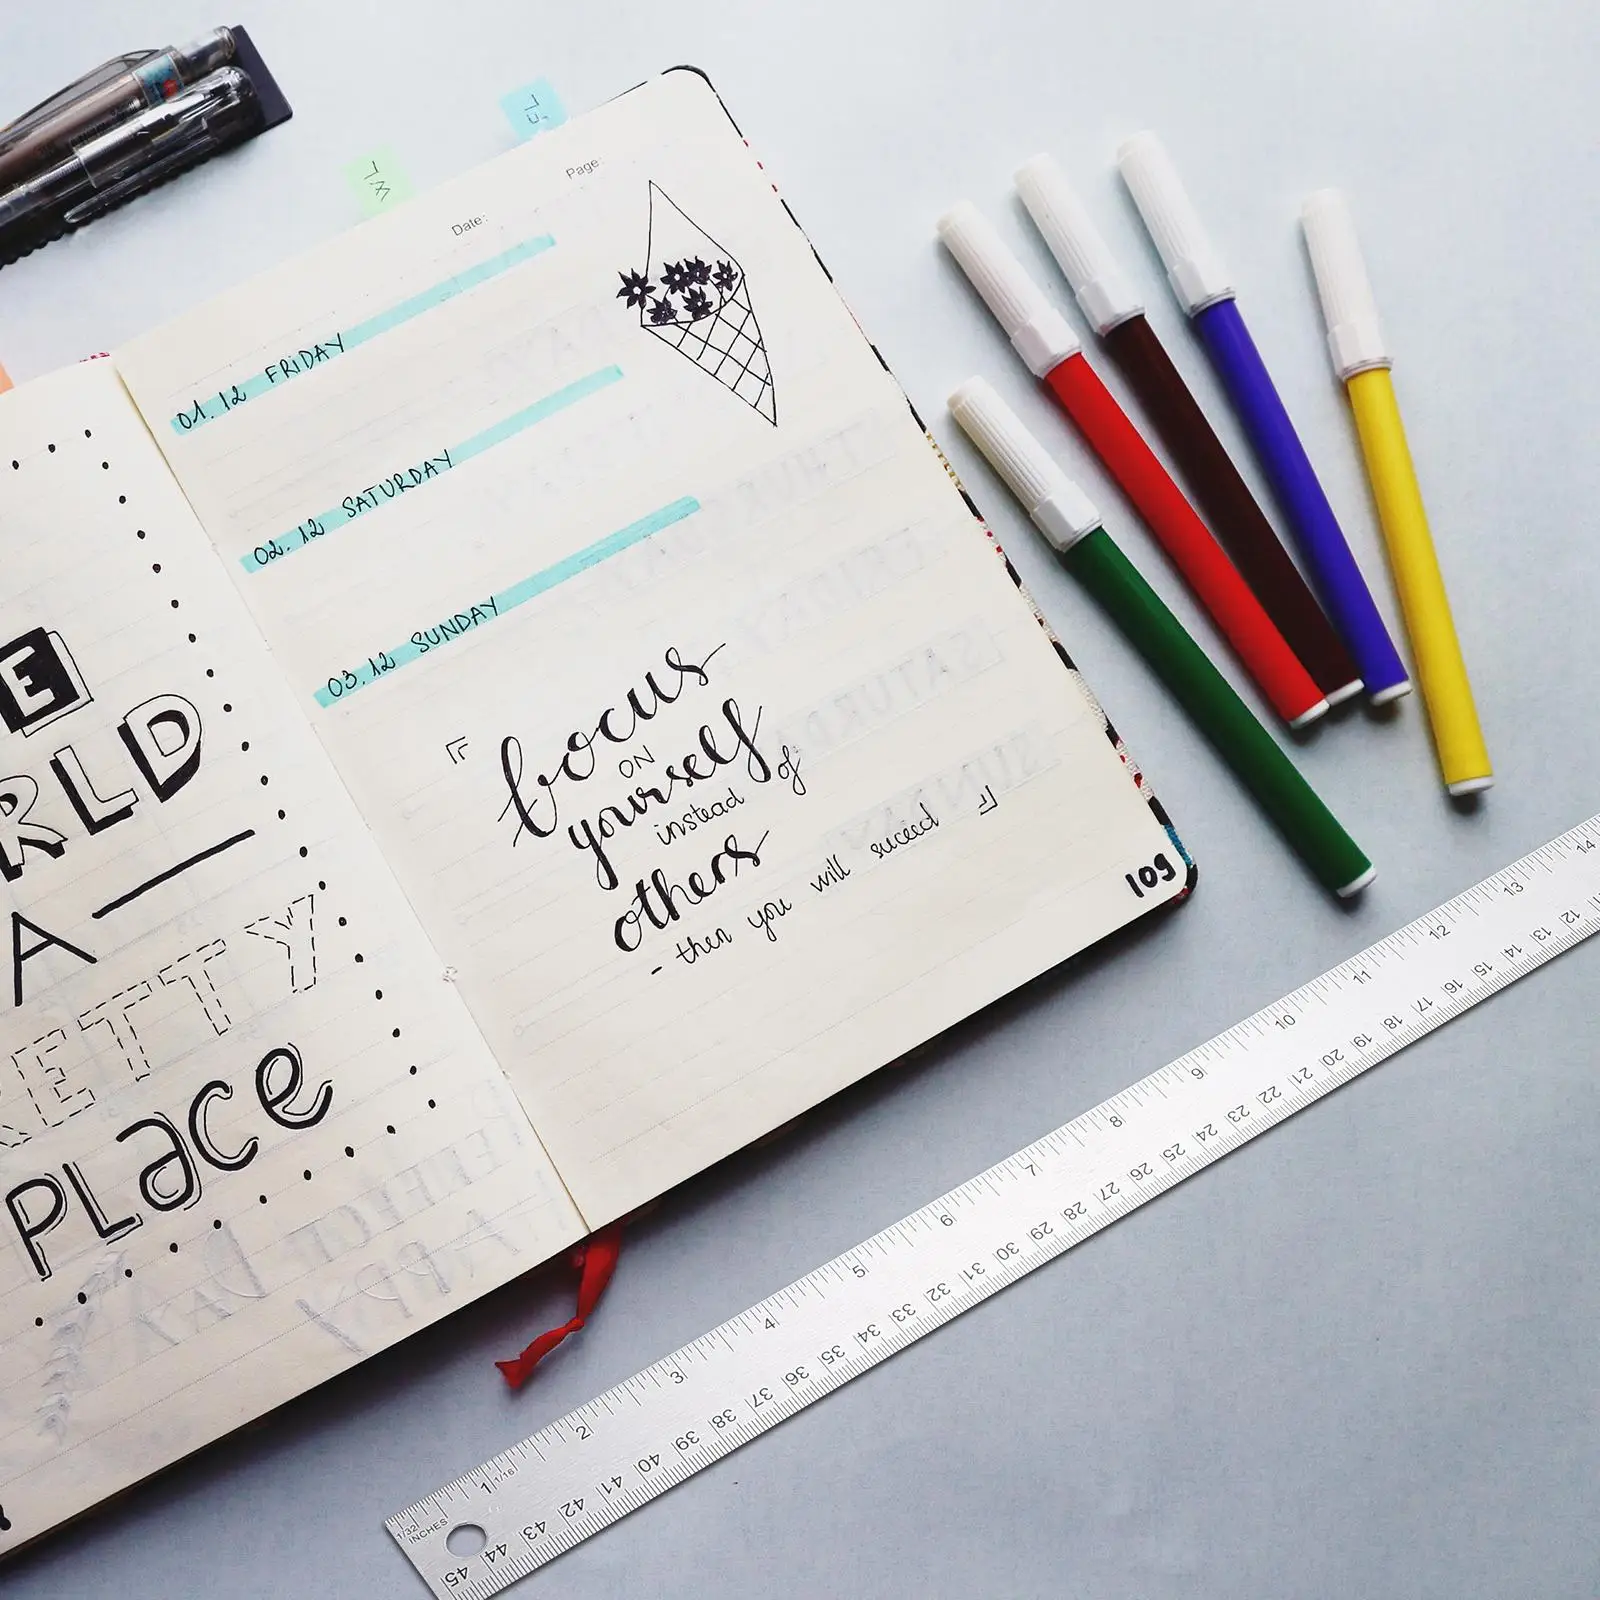 E
RLD
A
RETTY
PLace
Date:
Page:
01.12 FRIDAY
02.12 SATURDAY
03.12 SUNDAY
focus
ON
yourself
instead of
others
- then you will suceed
109
1/32
INCHES
1/16
1 2 3 4 5 6 7 8 9 10 11 12 13 14
12 13 14 15 16 17 18 19 20 21 22 23 24 25 26 27 28 29 30 31 32 33 34 35 36 37 38 39 40 41 42 43 44 45